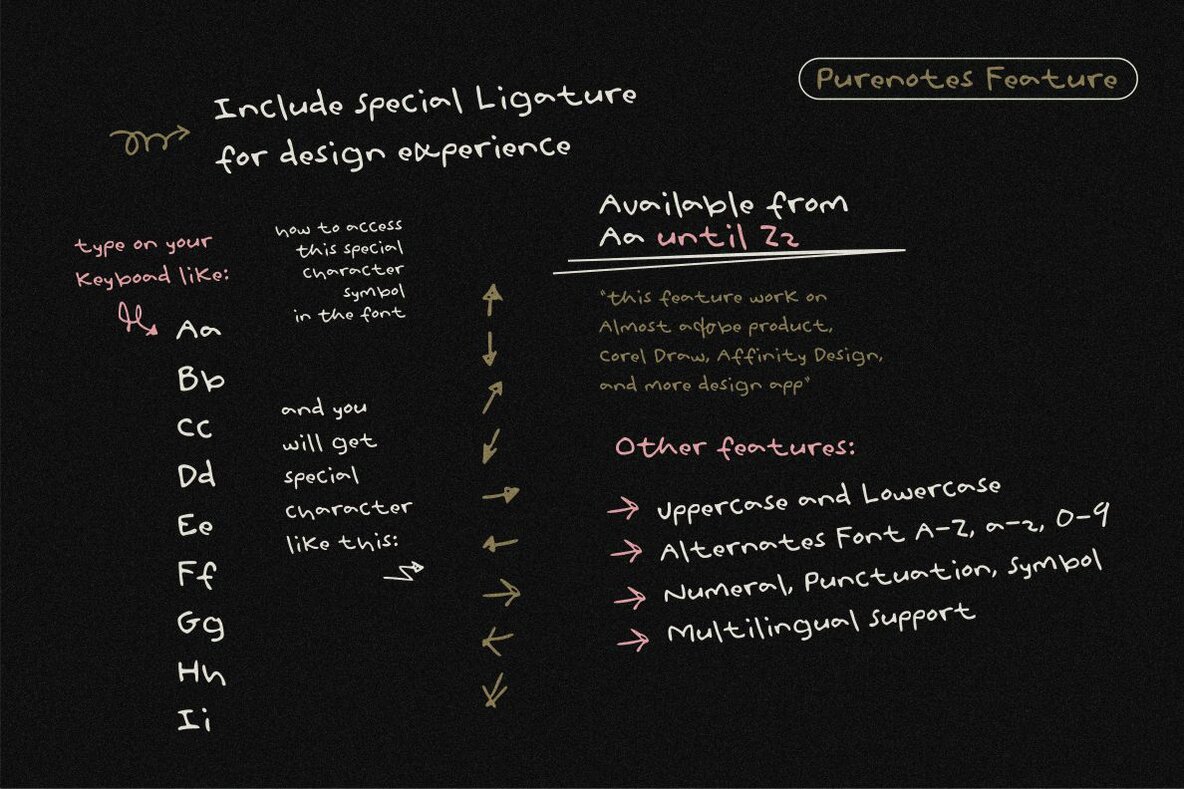 Purenotes Feature
Include special Ligature
for design experience
type on your
Keyboad like:
Aa
Bb
Cc
Dd
Ee
Ff
Gg
Hh
Ii
how to access
this special
character
symbol
in the font
and you
will get
special
character
like this:
Available from
Aa until Zz
"this feature work on
Almost adobe product,
Corel Draw, Affinity Design,
and more design app"
Other features:
Uppercase and Lowercase
Alternates Font A-Z, a-z, 0-9
Numeral, Punctuation, Symbol
Multilingual support